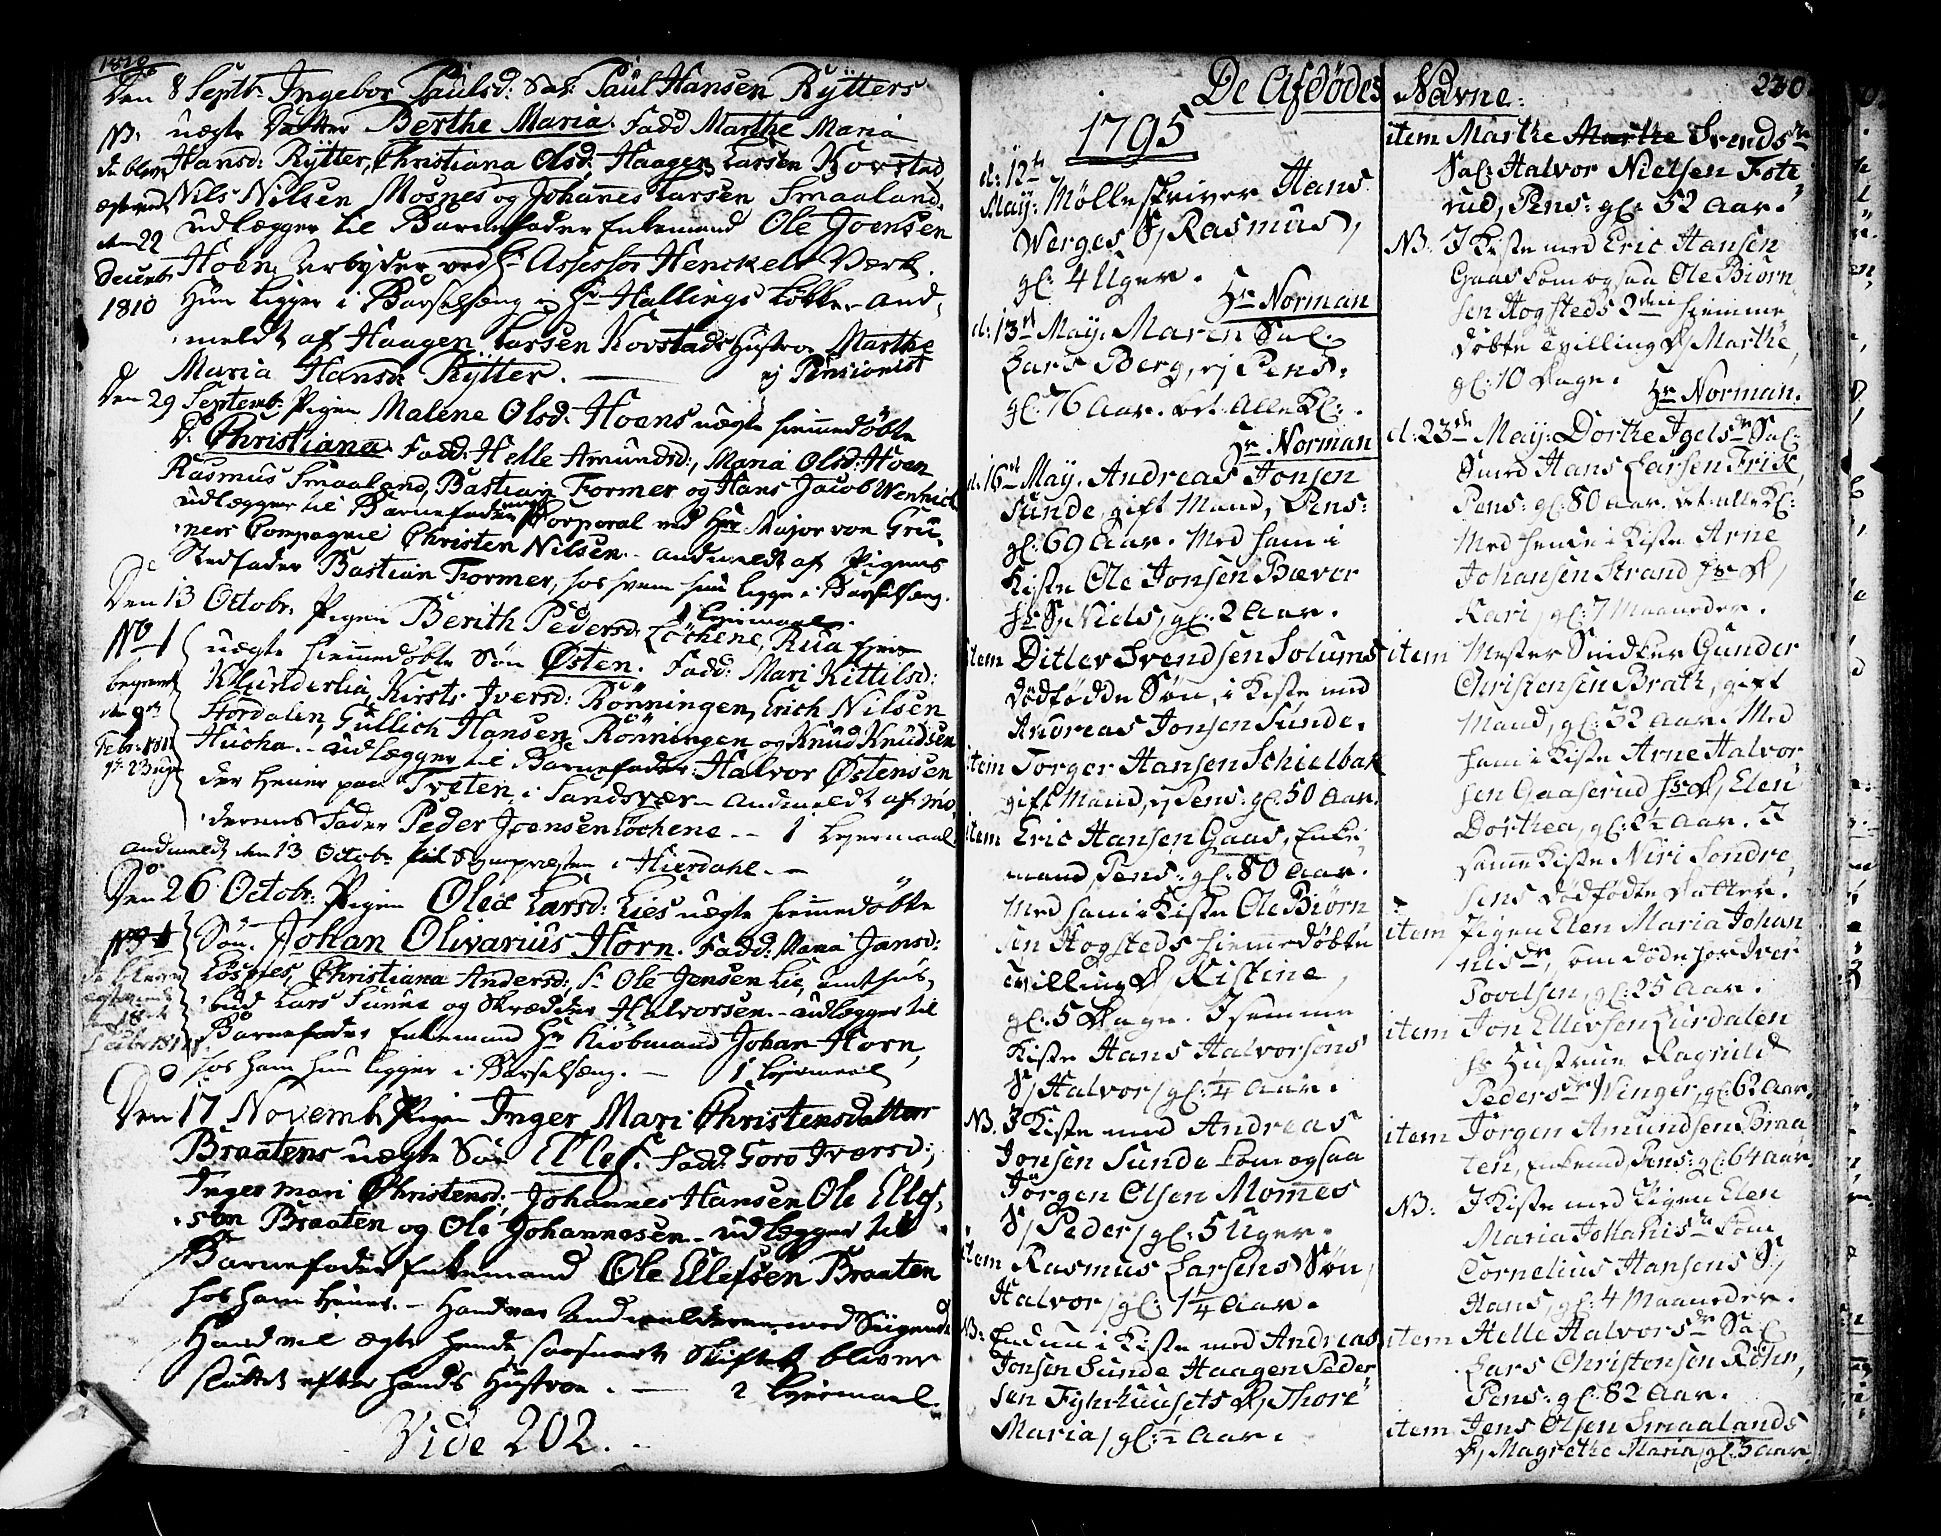 1810
Den 8 Septb. Ingebor Paulsd: Sal: Paul Hansen Rÿtters
uægte Datter Berthe Maria. Fadd Marthe Maria
Hansd: Rÿtter, Christiana Olsd: Haagen Larsen Kovstad,
Nils Nilsen Mosnes og Johannes Larsen Smaaland.
udlægger til Barnefader Enkemand Ole Joensen
Hoen Arbyder ved Hr Assessor Henckels Værk.
Hun ligger i Barselsæng i Hr Hallings Løkke. And-
meldt af Haagen Larsen Kovstads Hustroe Marthe
Maria Hansd: Rÿtter. — ej Pensionist
NB.
da blev
ægteviet
den 22
Decembr
1810
Den 29 Septembr. Pigen Malene Olsd: Hoens uægte hiemmedøbte
D. Christiana. Fadd: Helle Amundsd:, Maria Olsd: Hoen
Rasmus Smaaland, Bastian Former og Hans Jacob Wennich
udlægger til Barnefader Korporal ved Hr Major von Grü-
ners Compagnie Christen Nilsen. – andmeldt af Pigens
Stedfader Bastian Former, hos hvem hun ligger i Barselsæng.
1 Leiermaal.
Den 13 Octobr. Pigen Berith Pedersd: Løchene, Rua hiem
uægte hiemmedøbte Søn Østen. Fadd: Mari Kittilsd:
Klunderlia, Kirsti Iversd: Rönningen, Erich Nilsen
Hordalen, Gullich Hansen Rönningen og Knud Knudsen
Huoha. – udlægger til Barnefader Halvor Østensen
der tiener paa Tveten i Sandsvær – Andmeldt af Mo-
derens Fader Peder Joensen Løchene -- 1 Leiermaal
andmeldt den 13 Octobr til Sognepræsten i Hierdahl. –
No 1
begravet
den 9de
Febr. 1811
gl. 23 uger
Den 26 Octobr: Pigen Olea Larsd: Lies uægte hiemmedøbte
Søn. Johan Olivarius Horn. Fadd: Maria Jansd:
Løsnes, Christiana Andersd:, S. Ole Jensen Lie, amthus-
bud Lars Sunne og Skrædder Halvorsen. – udlægger til
Barnefader Enkemand Hr Kiöbmand Johan Horn,
hos ham hun ligger i Barselsæng. — 1 Leiermaal
Den 17 Novembr Pigen Inger Mari Christensdatter
Braatens uægte Søn Ellef. Fadd: Toro Iversd:,
Inger Mari Christensd:, Johannes Hansen Ole Ellef-
sen Braaten og Ole Johannesen – udlægger til
Barnefader Enkemand Ole Ellefsen Braaten
hos ham tiener. – Hand var Andmelderen, med Siigende
Hand vil ægte hende saasnart Skiftet bliver
sluttet efter hands Hustroe. — 2 Leiermaal.
Vide 202.
De Afdødes Navne:
230.
1795
d: 12te
May: Mølleskriver Hans
Werges S, Rasmus,
gl: 4 Uger.
Hr Norman
d: 13de May. Maren Sal.
Lars Berg, ej Pens:
gl: 76 Aar. bet. Alle Kl:.
Hr Norman
d: 16de May. Andreas Jonsen
Sunde, gift Mand, Pens:
gl: 69 Aar. Med ham i
Kiste Ole Jonsen Bævor
hs S, Niels, gl: 2 Aar.
item Ditlev Svendsen Solums
dødfødde Søn, i Kiste med
Andreas Jonsen Sunde.
item Torger Hansen Schielbak
gift Mand, ej Pens: gl: 50 Aar.
item Eric Hansen Gaas, Enke-
mand, Pens: gl: 80 Aar.
Med ham i Kiste Ole Biørn-
sen Hogsteds hiemmedøbte
Tvilling D, Kistine,
gl: 5 Dage. I samme
Kiste Hans Halvorsens
S, Halvor, gl: ¼ Aar.
NB. I Kiste med Andreas
Jonsen Sunde kom ogsaa
Jørgen Olsen Momes
S, Peder, gl: 5 Uger.
item Rasmus Larsens Søn,
Halvor, gl: 1¼ Aar.
NB: Endnu i Kiste med Andreas
Jonsen Sunde Haagen Peder-
sen Fyhrhuusets D, Thore
Maria, gl: ½ Aar.
item Marthe Marthe Svendsdr
Sal: Halvor Nielsen Fote-
rud, Pens: gl: 52 Aar.
NB: I Kiste med Eric Hansen
Gaas kom ogsaa Ole Biørn-
sen Hogsteds 2den hiemme-
døbte Tvilling D, Marthe,
gl: 10 Dage.
Hr Norman.
d: 23de May: Dorthe Igelsdr Sal:
Smed Hans Larsen Frick
Pens: gl: 80 Aar. bet: alle Kl:
Med hende i Kiste Arne
Johansen Strand hs D,
Kari, gl: 7 Maaneder.
item Mester Snidker Gunder
Christensen Brath, gift
Mand, gl: 52 Aar. Med
ham i Kiste Arne Halvor-
sen Gaaserud hs D, Elen
Dorthea, gl: 2½ Aar. I
samme Kiste Niri Sondre-
sens dødfødte Datter.
item Pigen Elen Maria Johan-
nisdr, som døde hos Iver
Povelsen, gl: 25 Aar.
item Jon Ellevsen Lurdalen
hs Hustrue Ragnild
Pedersdr Winger, gl: 62 Aar.
item Jørgen Amundsen Braa-
ten, Enkemd, Pens: gl: 64 Aar.
NB: I Kiste med Pigen Elen
Maria Johanisdr kom
Cornelius Hansens S,
Hans, gl: 4 Maaneder.
item Helle Halvorsdr Sal
Lars Christensen Röhr,
Pens: gl: 82 Aar.
item Jens Olsen Smaalands
D, Magrethe Maria, gl: 3 aar